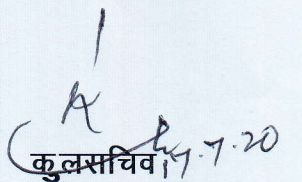 कुलसचिव
17.7.20